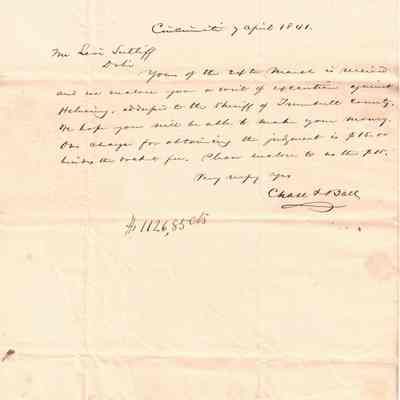 Cincinnati 7 April 1841.
Mr Levi Sutliff
D Sir
Yours of the 24th March is received
and we enclose you a writ of execution against
addressed to the Sheriff of Trumbull County.
We hope you will be able to make your money.
Our charge for obtaining the judgment is $15.00
besides the docket fee. Please enclose to us the $15.
Very respy Yrs
Chase & Ball
$1126,85 cts